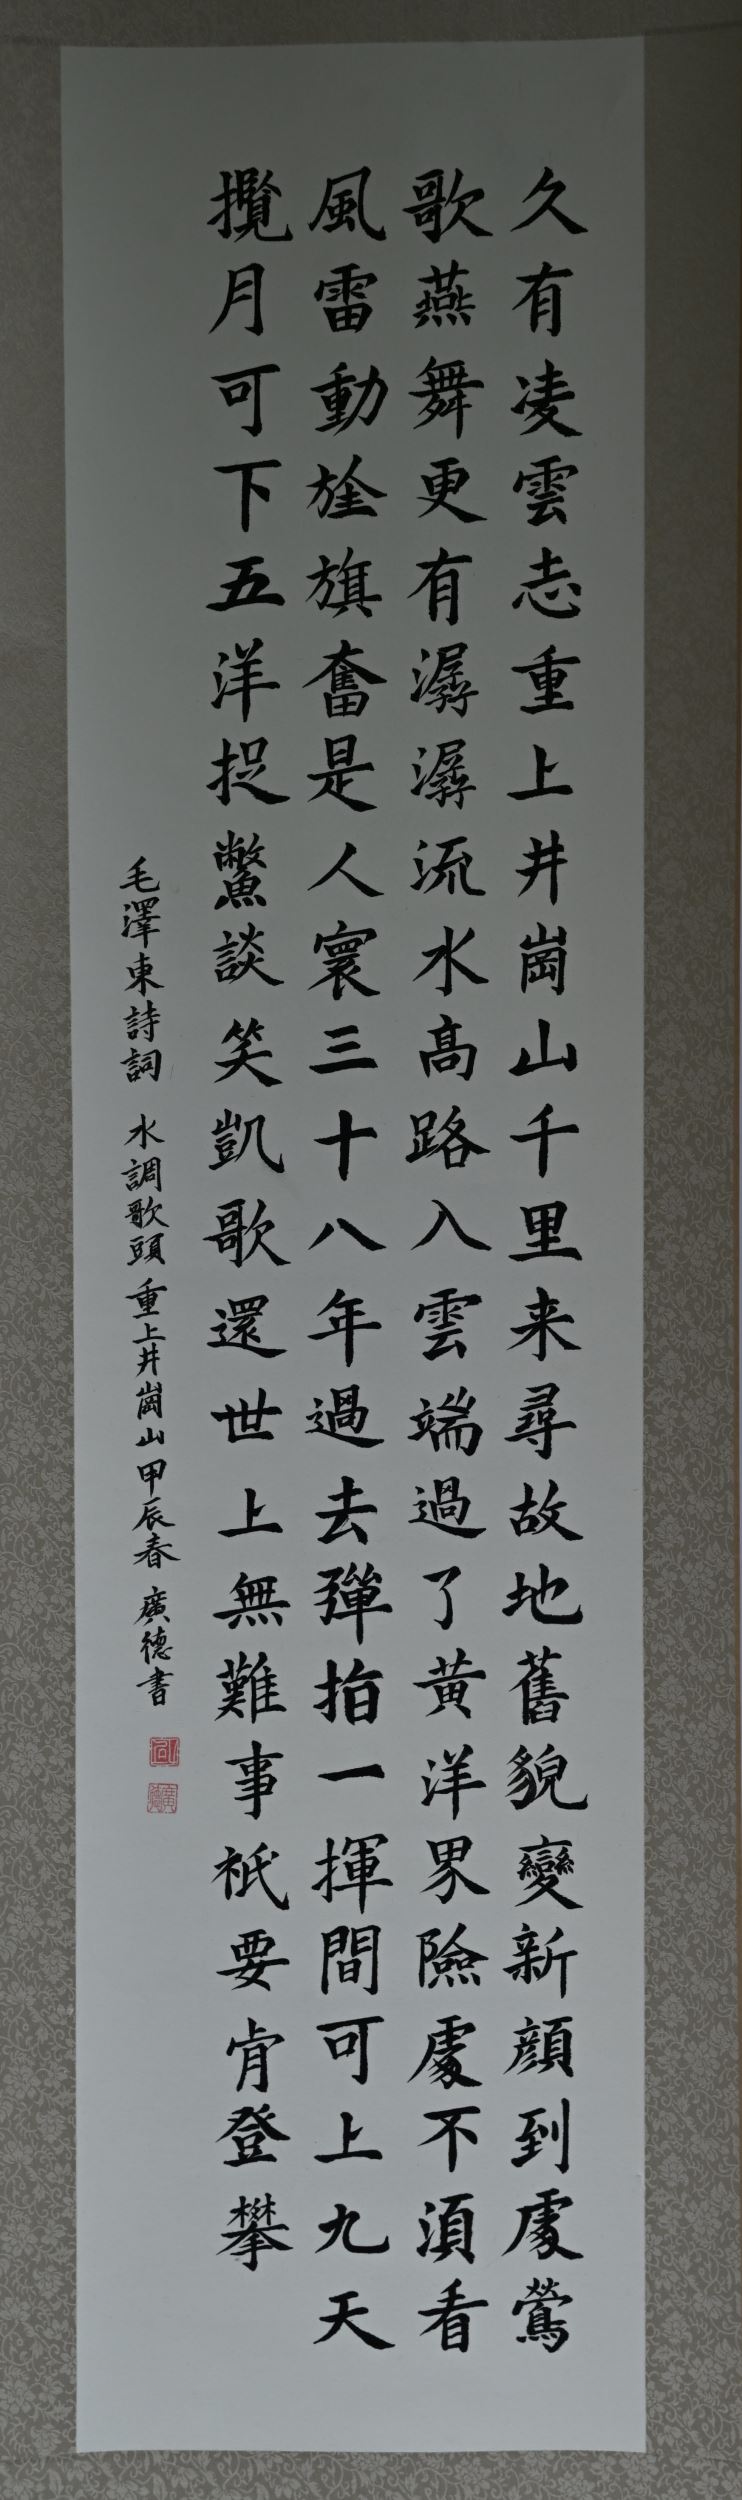 久有凌雲志重上井崗山千里来尋故地舊貌變新顔到處鶯
歌燕舞更有潺潺流水高路入雲端過了黄洋界險處不須看
風雷動旌旗奮是人寰三十八年過去彈指一揮間可上九天
攬月可下五洋捉鱉談笑凱歌還世上無難事祇要肯登攀
毛澤東詩詞 水調歌頭 重上井崗山甲辰春 廣德書
廣德